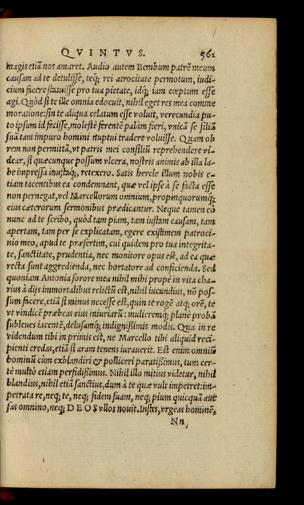 QVINTVS. 561
magis etiā nos amaret. Audio autem Bembum patrē meum
causam ad te detulisse, teq; rei atrocitate permotum, iudi-
cium ficere statuisse pro tua pietate, idq; iam cœptum esse
agi. Quòd si te ille omnia edocuit, nihil eget res mea comme
moratione: sin te aliqua celatum esse voluit, verecundia pu-
to ipsum id fecisse, molestè ferentē palàm fieri, vnicā se filiā
suā tam impuro homini nuptui tradere voluisse. Quam ob
rem non permittā, vt patris mei consiliū reprehendere vi-
dear, si quæcunque possum vlcera, nostris animis ab illa la-
be impressa inustaq;, retexero. Satis hercle illum nobis e-
tiam tacentibus ea condemnant, quæ vel ipse à se facta esse
non pernegat, vel Marcellorum omnium, propinquorumq;
eius cæterorum sermonibus prædicantur. Neque tamen eò
nunc ad te scribo, quòd tam piam, tam iustam causam, tam
apertam, tam per se explicatam, egere existimem patroci-
nio meo, apud te præsertim, cui quidem pro tua integrita-
te, sanctitate, prudentia, nec monitore opus est, ad ea quæ
recta sunt aggredienda, nec hortatore ad conficienda. Sed
quoniam Antonia sorore mea nihil mihi propè in vita cha-
rius à dijs immortalibus relictū est, nihil iucundius, nō pos-
sum facere, etiā si minus necesse est, quin te rogē atq; orē, te
vt vindicē præbeas eius iniuriarū: mulieremq; planè probā
subleues iacentē, delusamq; indignissimis modis. Qua in re
videndum tibi in primis est, ne Marcello tibi aliquid reci-
pienti credas, etiā si aram tenens iurauerit. Est enim omniū
hominū cùm exblandiri & polliceri paratissimus, tum cer-
tè multò etiam perfidissimus. Nihil illo mitius videtur, nihil
blandius, nihil etiā sanctius, dum à te quæ vult impetret: im-
petrata re, neq; te, neq; fidem suam, neq; pium quicquā aut
fas omnino, neq; DEOS vllos nouit. Instes, vrgeas hominē,
Nn